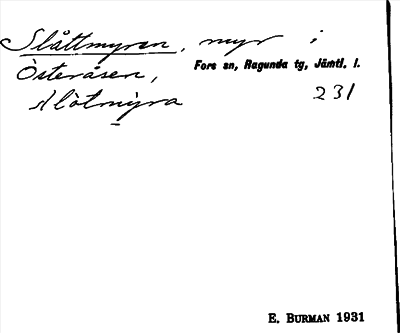 Slåttmyren, myr i
Österåsen, Fors sn, Ragunda tg, Jämtl. l.
slòtmyra 231
E. BURMAN 1931